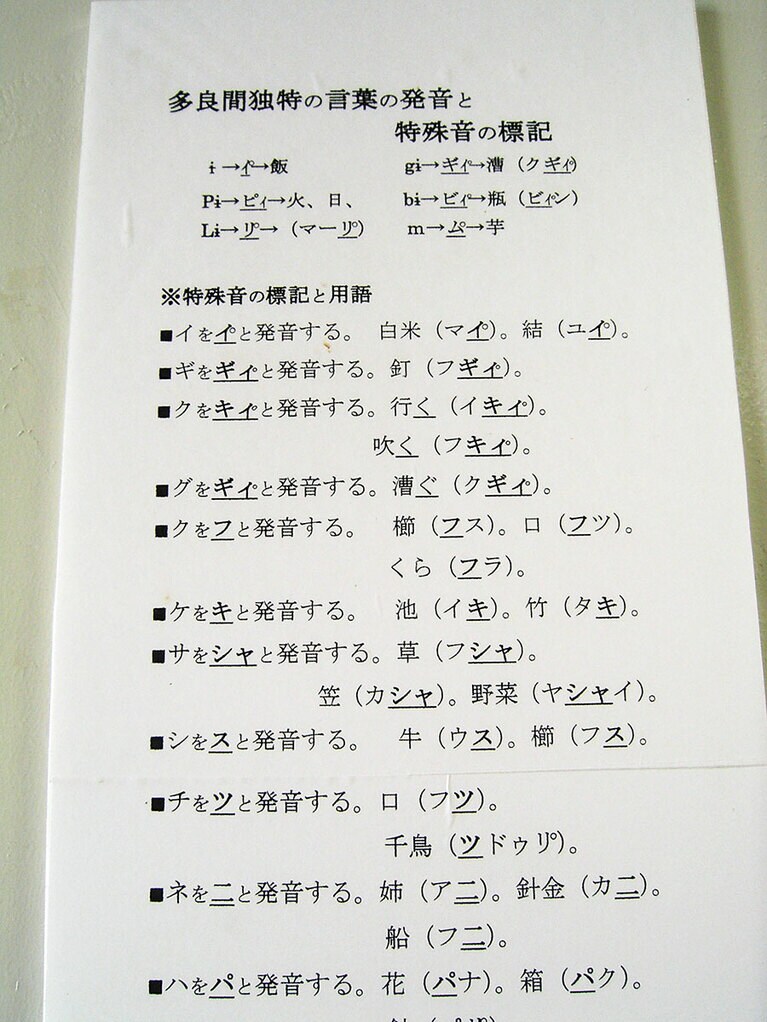 多良間独特の言葉の発音と
特殊音の標記
ɨ→イ゜→飯 gɨ→ギィ゜→漕（クギィ゜）
Pɨ→ピィ→火、日、 bɨ→ビィ゜→瓶（ビィ゜ン）
Lɨ→リ゜→（マーリ゜） m→ム゜→芋
※特殊音の標記と用語
■イをイ゜と発音する。 白米（マイ゜）。結（ユイ゜）。
■ギをギィ゜と発音する。釘（フギィ゜）。
■クをキィ゜と発音する。行く（イキィ゜）。
吹く（フキィ゜）。
■グをギィ゜と発音する。漕ぐ（クギィ゜）。
■クをフと発音する。 櫛（フス）。口（フツ）。
くら（フラ）。
■ケをキと発音する。 池（イキ）。竹（タキ）。
■サをシャと発音する。草（フシャ）。
笠（カシャ）。野菜（ヤシャイ）。
■シをスと発音する。 牛（ウス）。櫛（フス）。
■チをツと発音する。口（フツ）。
千鳥（ツドゥリ゜）。
■ネをニと発音する。姉（アニ）。針金（カニ）。
船（フニ）。
■ハをパと発音する。花（パナ）。箱（パク）。